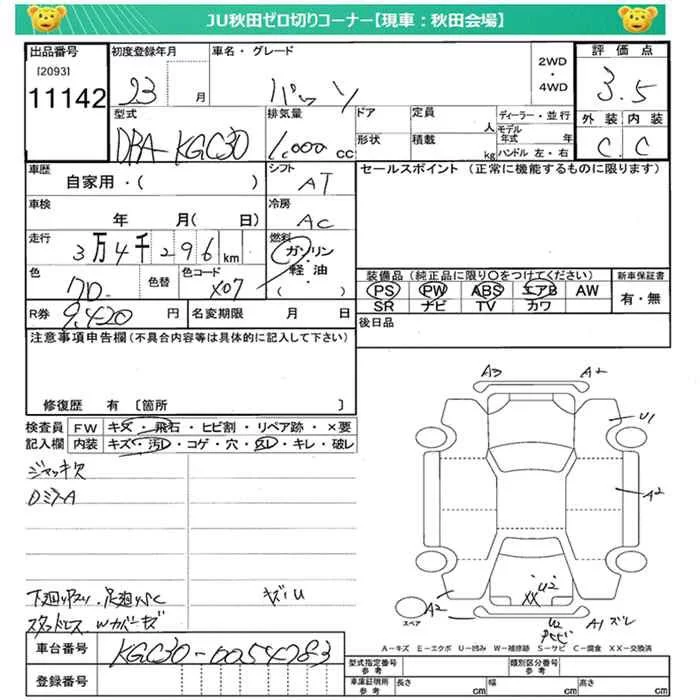 JU秋田ゼロ切りコーナー【現車:秋田会場】
出品番号 初度登録年月 車名・グレード 2WD ・ 4WD 評価点
[2093]
11142 23 月 パッソ 3.5
型式 排気量 ドア 定員 人 ディーラー・並行 外装 内装
DBA-KGC30 1,000 cc 形状 積載 kg モデル年式 年 ハンドル 左・右 C C
車歴 シフト セールスポイント(正常に機能するものに限ります)
自家用・( ) AT
車検 冷房
年 月( 日) AC
走行 燃料
3万4千296km ガソリン
色 色替 色コード ・軽油・
70 X07 ( )
装備品(純正品に限り〇をつけてください) 新車保証書
PS PW ABS エアB AW 有・無
SR ナビ TV カワ
R券 9,420 円 名変期限 月 日 後日品
注意事項申告欄(不具合内容等は具体的に記入して下さい)
修復歴 有 〔箇所 〕
検査員 FW キズ・飛石・ヒビ割・リペア跡・×要
記入欄 内装 キズ・汚レ・コゲ・穴・スレ・キレ・破レ
ジャッキ欠
DミラーA
下廻サビ・足廻サビC キズ・U
スタッドレス Wカバーキズ
A3 A2
U1
A2
U2
XX
A2
スペア
U2 A1 ズレ
A-キズ E-エクボ U-凹み W-補修跡 S-サビ C-腐食 XX-交換済
車台番号 KGC30-0054783
登録番号
型式指定番号 参考 類別区分番号 参考
車庫証明用 参考 長さ cm 幅 cm 高さ cm